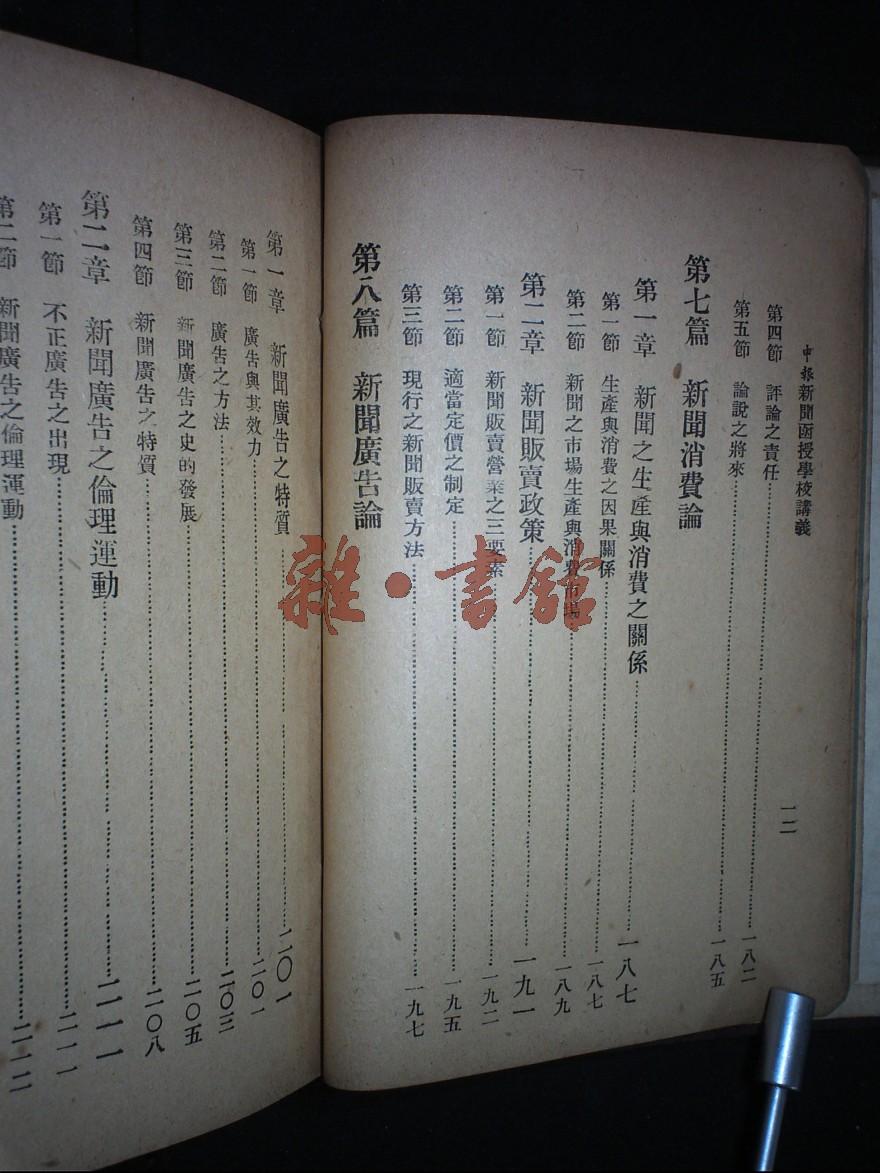 申報新聞函授學校講義
一二
第四節 評論之責任 一八二
第五節 論說之將來 一八五
第七篇 新聞消費論
第一章 新聞之生產與消費之關係 一八七
第一節 生產與消費之因果關係 一八七
第二節 新聞之市場生產與消費市場 一八九
第二章 新聞販賣政策 一九一
第一節 新聞販賣營業之三要素 一九二
第二節 適當定價之制定 一九五
第三節 現行之新聞販賣方法 一九七
第八篇 新聞廣告論
第一章 新聞廣告之特質 二〇一
第一節 廣告與其效力 二〇一
第二節 廣告之方法 二〇三
第三節 新聞廣告之史的發展 二〇五
第四節 新聞廣告之特質 二〇八
第二章 新聞廣告之倫理運動 二一一
第一節 不正廣告之出現 二一一
第二節 新聞廣告之倫理運動 二一二
雜·書館